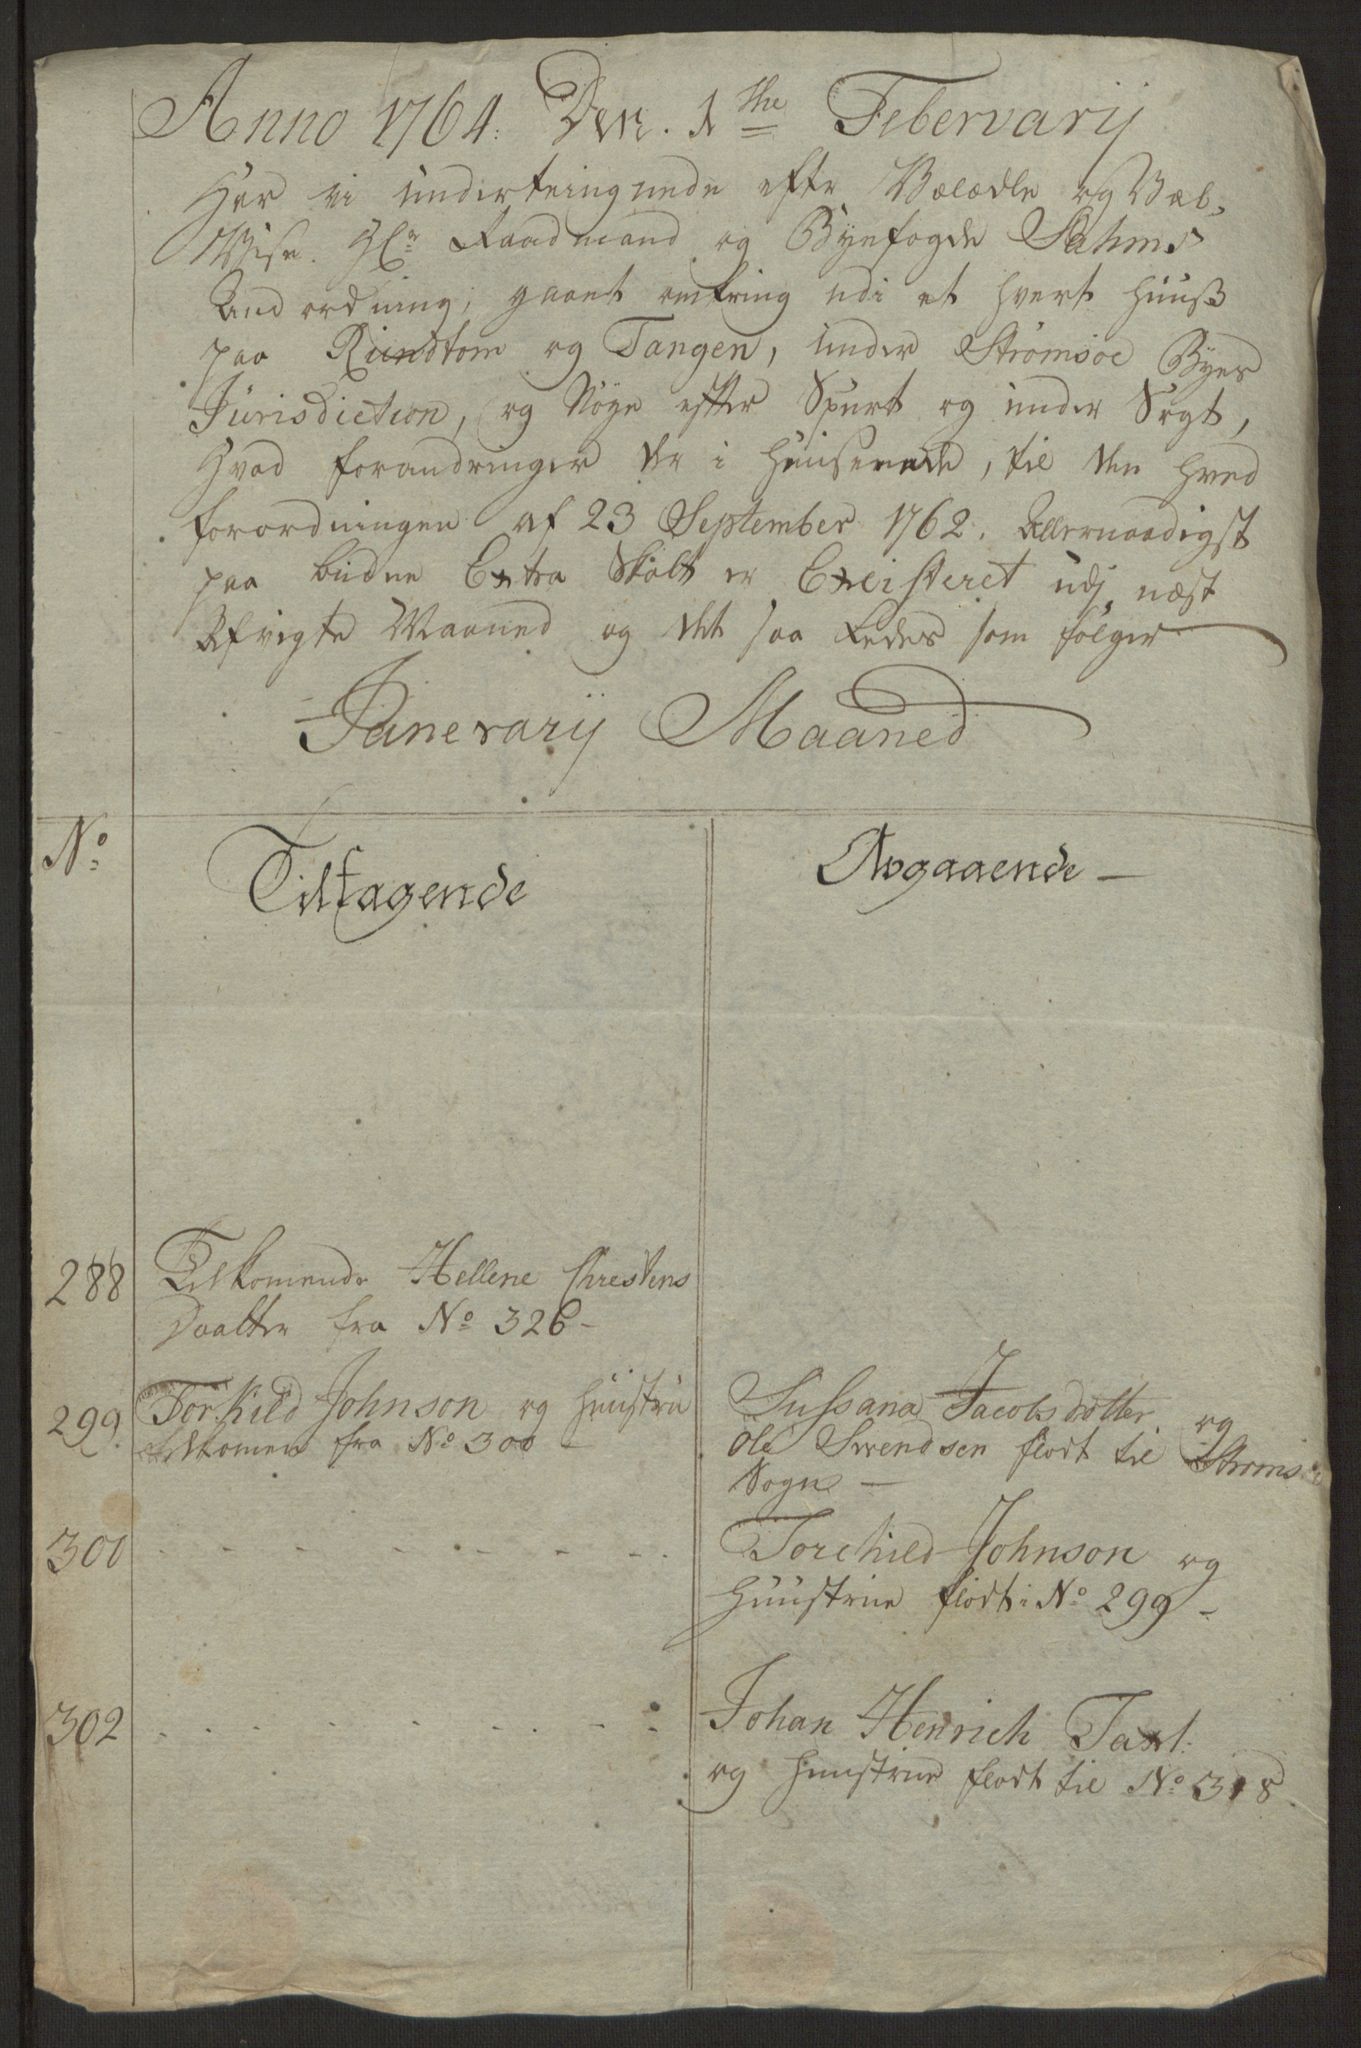 Anno 1764. Den. 1the Febervarij
Har vi underteingnede efter Velædle og Vel-
Wise. Hr Raadmand og Byefogde Sahms
And ordning, gaaet omkring udi et hvert Huuß
paa Rundtom og Tangen, under Strømsøe Byes
Jurisdiction, og Nøye efter Spurt og under Søgt,
Hvad forandringer der i Huusene, til den hved
forordningen af 23 September 1762. Allernaadigst
paa budne Extra Skatt er Exeisteret udj næst
Afvigte Maaned og det saa Ledes som følger
Janevarij Maaned
No Tiltagende Avgaaende
288 Tilkomende Hellene Chrestens
Daatter fra No 326
299 Torkild Johnson og Huustru
tilkomen fra No 300
Sussana Jacobsdotter og
Ole Swendsen flødt til Strømsøe
Sogn
300 Torchild Johnson og
Huustrue flødt i No 299
302 Johan Henrich Taxl:
og Huustrue flødt til No 318